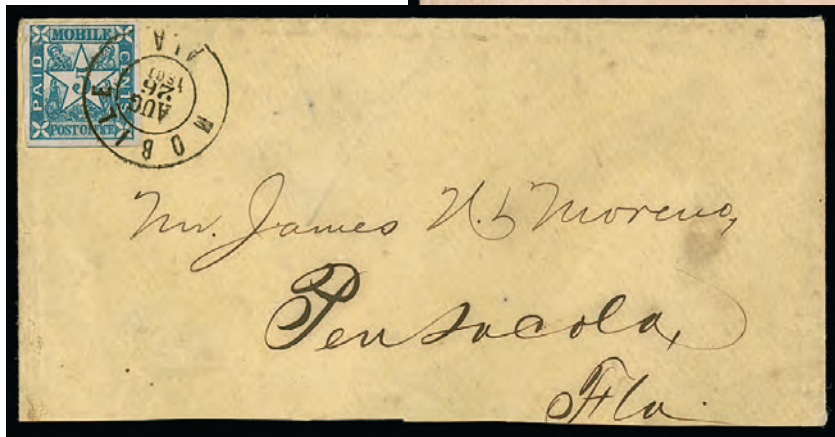 MOBILE
PAID
5
CENTS
POST OFFICE
MOBILE ALA
AUG
26
1861
Mr. James N. Moreno,
Pensacola,
Fla.